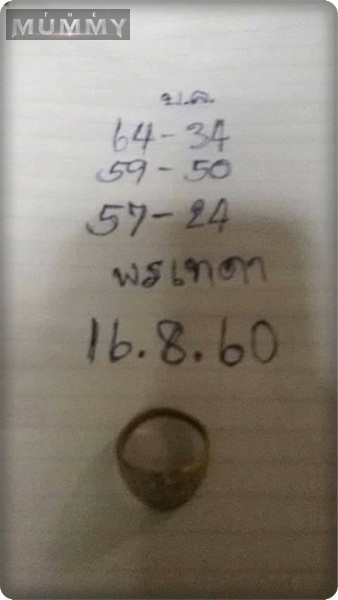 THE
MUMMY
บ.ล.
64-34
59-50
57-24
พรเทดา
16.8.60